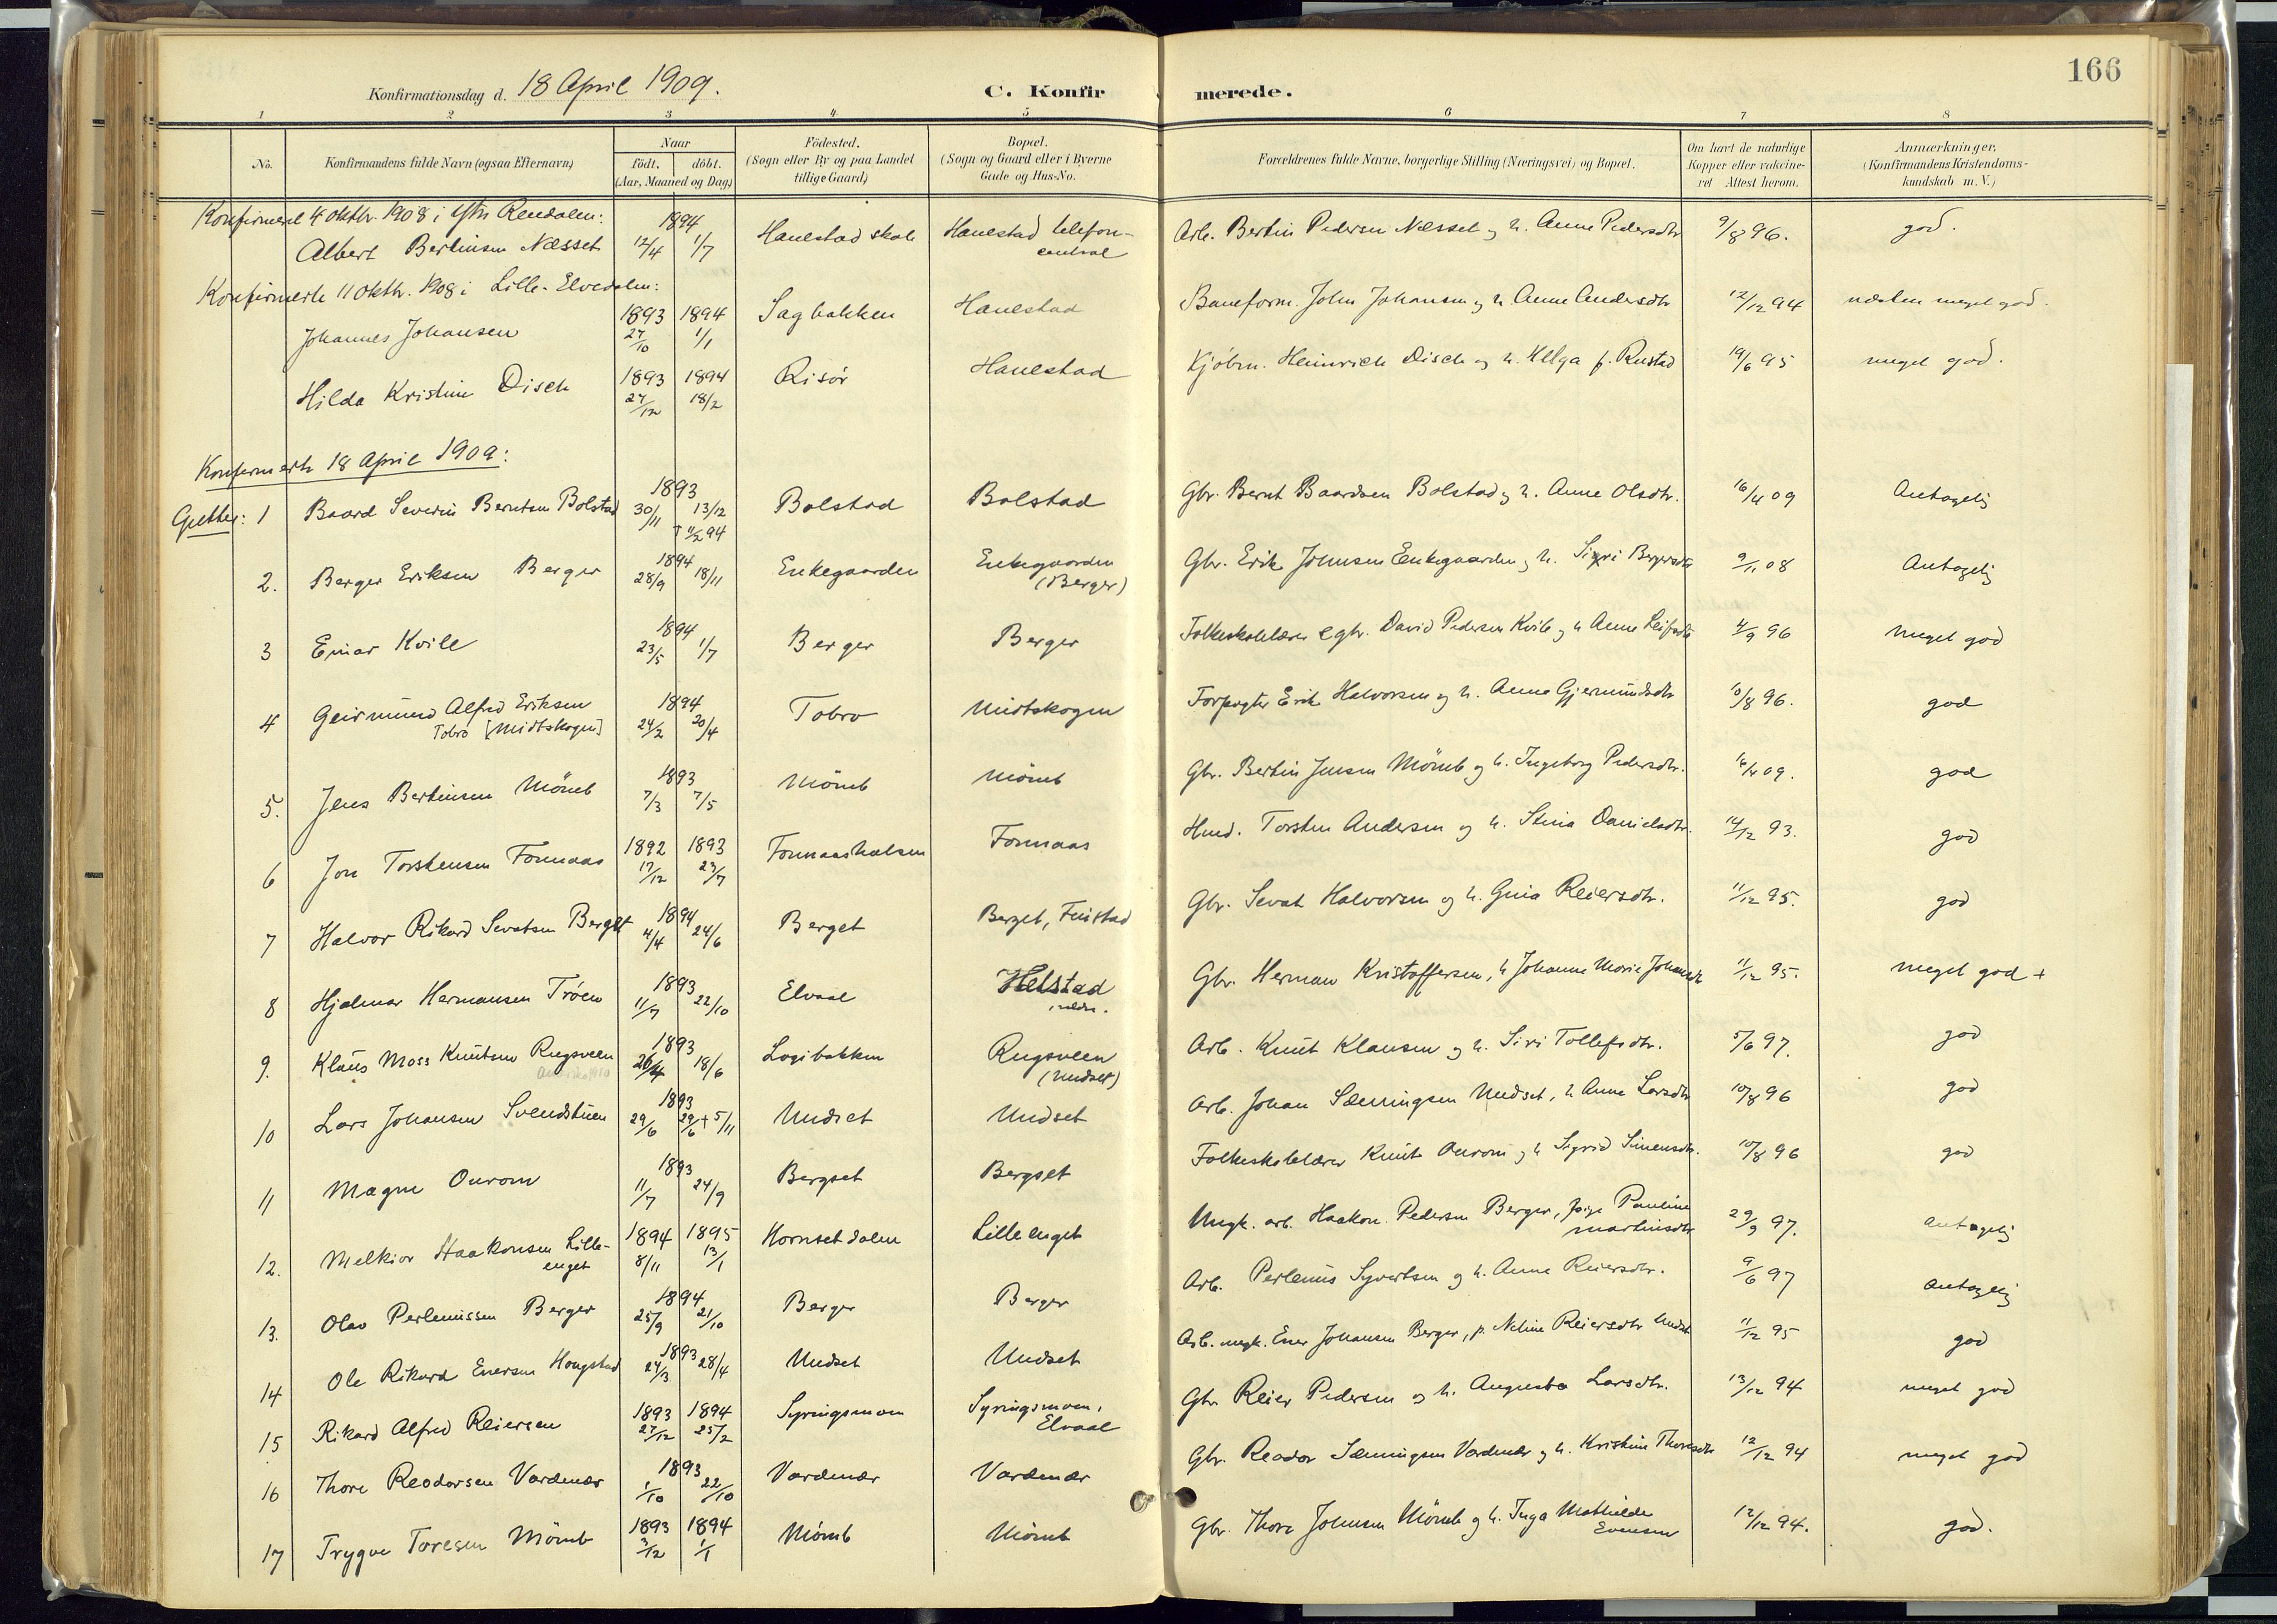 166
Konfirmationsdag d. 18 April 1909. C. Konfirmerede.
1 2 3 4 5 6 7 8
No. Konfirmandens fulde Navn (ogsaa Efternavn) Naar födt. döbt. (Aar, Maaned og Dag) Födested. (Sogn eller By og paa Landet tillige Gaard) Bopæl. (Sogn og Gaard eller i Byerne Gade og Hus-No. Forældrenes fulde Navne, borgerlige Stilling (Næringsvei) og Bopæl. Om havt de naturlige Kopper eller vaccineret Attest herom. Anmærkninger. (Konfirmandens Kristendomskundskab m. V.)
Konfirmeret 4 oktbr. 1908 i Ytre Rendalen:
Albert Bertinsen Næsset 1894 12/4 1/7 Hanestad skole Hanestad telefon-central Arb. Bertin Pedersen Næsset og h. Anne Pedersdtr 9/8 96. god.
Konfirmerte 11 oktbr. 1908 i Lille-Elvedalen:
Johannes Johansen 1893 27/10 1894 1/1 Sagbakken Hanestad Baneform. John Johansen og h. Anne Andersdtr 12/12 94 næsten meget god.
Hilda Kristine Disch 1893 27/12 1894 18/2 Risör Hanestad Kjöbm. Heinrich Disch og h. Helga f. Rustad 19/6 95 meget god.
Konfirmerte 18 April 1909:
Gutter: 1 Baard Severin Berntsen Bolstad 1893 30/11 13/12 † 11/2 94 Bolstad Bolstad Gbr. Bernt Baardsen Bolstad og h. Anne Olsdtr. 16/4 09 Antagelig
2. Berger Eriksen Berger 1894 28/9 18/11 Enkegaarden Enkegaarden (Berger) Gbr. Erik Johnsen Enkegaarden og h. Sigri Bergersdtr 9/11 08 Antagelig
3 Einar Kvile 1894 23/5 1/7 Berger Berger Folkeskolelærer &amp; gbr. David Pedersen Kvile og h Anne 4/9 96 meget god
4 Geirmund Alfred Eriksen Tobro [Midtskogen] 1894 24/2 20/4 Tobro Midtskogen Forpagter Erik Halvorsen og h. Anne Gjermundsdtr 10/8 96. god
5. Jens Bertinsen Mömb 1893 7/3 7/5 Mömb Mömb Gbr. Bertin Jensen Mömb og h. Ingeborg Pedersdtr. 16/4 09. god
6 Jon Torstensen Fonnaas 1892 17/12 1893 23/7 Fonnaasholsen Fonnaas Hmd. Torsten Andersen og h. Stina Danielsdtr. 14/12 93. god
7 Halvor Rikard Sevatsen Berget 1894 4/4 24/6 Berget Berget, Finstad Gbr. Sevat Halvorsen og h. Gina Reiersdtr. 11/12 95. god
8 Hjalmar Hermansen Tröen 1893 11/7 22/10 Elvaal Helstad Gbr. Herman Kristoffersen, h Johanne Marie Johansdtr 11/12 95. meget god +
9. Klaus Moss Knutsen Rugsveen 1893 26/4 18/6 Logibakken Rugsveen (Undset) Arb. Knut Klausen og h. Siri Tollefsdtr. 5/6 97. god
10 Lars Johansen Svendstuen 1893 29/6 29/6 + 5/11 Undset Undset Arb. Johan Sæmingsen Undset, h Anne Larsdtr 10/8 96 god
11 Magne Ourom 1893 11/7 24/9 Bergset Bergset Folkeskolelærer Knut Ourom og h Sigrid Simensdtr. 10/8 96 god
12. Melkior Haakonsen Lilleenget 1894 8/11 1895 13/1 Hornsetdalen Lilleenget Ungk. arb. Haakon Pedersen Berger, pige Pauline Martinsdtr 29/9 97. antagelig
13. Olav Perlenussen Berger 1894 25/9 21/10 Berger Berger Arb. Perlenus Syvertsen og h. Anne Reiersdtr. 9/6 97 antagelig
14 Ole Rikard Enersen Hongstad 1893 24/3 28/4 Undset Undset Arb. ungk. Ener Johansen Berger, p. Neline Reiersdtr Undset 11/12 95 god
15 Rikard Alfred Reiersen 1893 27/12 1894 25/2 Syringsmoen Syringsmoen, Elvaal Gbr Reier Pedersen og h. Augusta Larsdtr. 13/12 94 meget god
16 Thore Reodorsen Vardenær 1893 1/10 22/10 Vardenær Vardenær Gbr. Reodor Sæmingsen Vardenær og h. Kristine Thoresdtr 12/12 94 meget god
17 Trygve Toresen Mömb 1893 3/12 1894 1/1 Mömb Mömb Gbr. Thore Johnsen Mömb og h. Inga Mathilde Evensen 12/12 94. god.